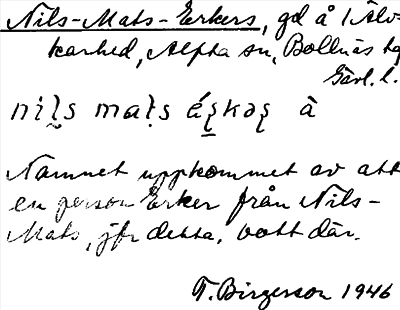 Nils-Mats-Erkers, gd å 1 Älv-
karhed, Alfta sn, Bollnäs tg
Gävl. l.
à
Namnet uppkommet av att
en person Erker från Nils-
Mats, jfr detta, bott där.
T. Birgerson 1946